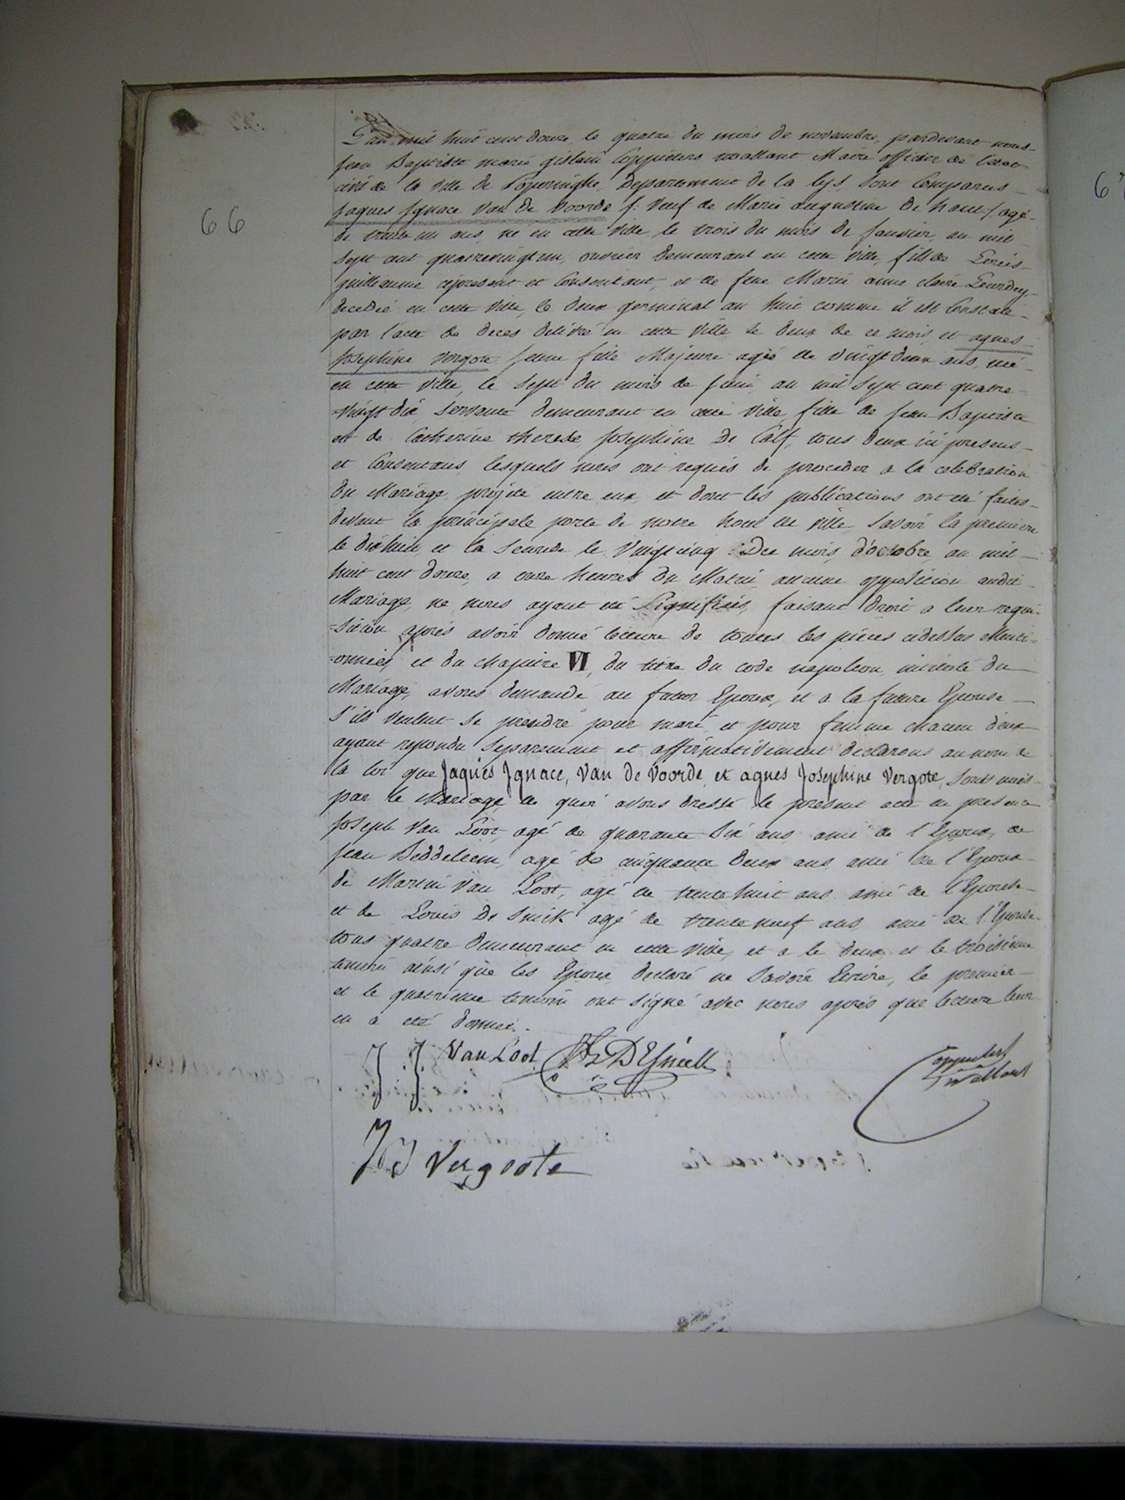 66
L'an mil huit cent douze, le quatre du mois de novembre, pardevant nous
jean Baptiste marie gislain Coppieters wallant Maire officier de l'etat
civil de la ville de Poperinghe, Departement de la lys sont Comparus
jaques Ignace Van de Voorde f. veuf de Marie augustine De haut / agé
de trente un ans, né en cette ville, le trois du mois de janvier, an mil
sept cent quatrevingt un, ouvrier demeurant en cette ville, fils de Louis
guillaume cipresent et Consentant, et de feue Marie anne claire
decedée en cette ville, le deux germinal an huit comme il est Constaté
par l'acte de deces delivré en cette ville le deux de ce mois, et agnes
Josephine Vergote jeune fille Majeure agée de vingt deux ans, née
en cette ville, le sept du mois de juin an mil sept cent quatre
vingt dix servante demeurant en cette ville, fille de jean Baptiste
et de Catherine therese josephine De Calf, tous deux ici presens
et Consentans lesquels nous ont requis de proceder a la celebration
du Mariage projeté entre eux, et dont les publications ont été faites
devant la principale porte de notre hotel de ville, savoir la premiere
le dixhuit et la seconde le vingtcinq Des mois d'octobre an mil
huit cent douze, a onze heures du Matin aucune opposition audit
Mariage, ne nous ayant été signifiée, faisant droit a leur requi-
sition après avoir donné lecture de toutes les pièces cidessus Menti-
onnées, et du chapitre VI, du titre du code napoleon intitulé du
Mariage, avons demandé au futur Epoux, et a la future Epouse
s'ils veulent se prendre pour mari et pour femme chacun d'eux
ayant repondu separement et affirmativement declarons au nom de
la loi que Jaques Ignace, Van de Voorde et agnes Josephine Vergote, sont unis
par le Mariage, de quoi avons dressé le present acte en presence
Joseph Van Loot, agé de quarante six ans ami de l'Epoux, de
jean agé de cinquante deux ans ami de l'Epoux
de Martin Van Loot, agé de trente huit ans ami de l'Epouse
et de Louis De Snick agé de trente neuf ans ami de l'Epouse
tous quatre demeurant en cette ville, et a le deux et le troisieme
temoin ainsi que les Epoux declaré ne savoir Ecrire, le premier
et le quatrieme temoin ont signé avec nous après que lecture leur
en a été donnée.
J. J. Van Loot
Coppieters
wallant
Vergote